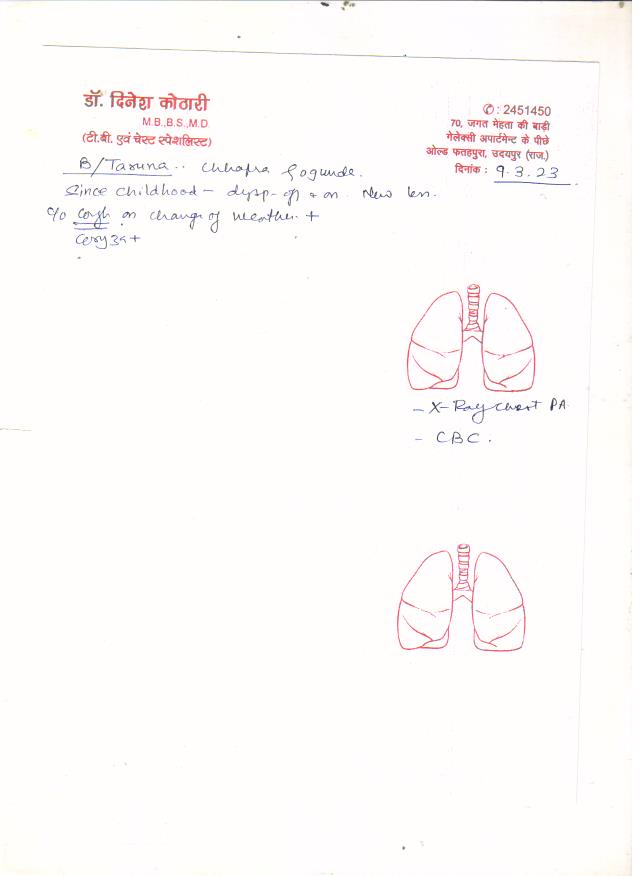 डॉ. दिनेश कोठारी
M.B.,B.S.,M.D.
(टी.बी. एवं चेस्ट स्पेशलिस्ट)
✆ : 2451450
70, जगत मेहता की बाड़ी
गेलेक्सी अपार्टमेन्ट के पीछे
ओल्ड फतहपुरा, उदयपुर (राज.)
दिनांक : 9.3.23
B/Taruna .. Chhapra Gogunda.
Since childhood - dysp- off & on. New
c/o cough on change of weather +
- X-Ray chest PA
- CBC.